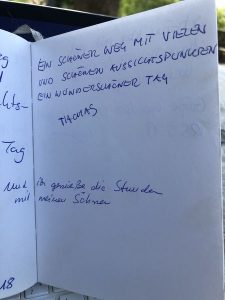 EIN SCHÖNER WEG MIT VIELEN
UND SCHÖNEN AUSSICHTSPUNKTEN
EIN WUNDERSCHÖNER TAG
THOMAS
Tag
und ich genieße die Stunden
mit meinen Söhnen
18